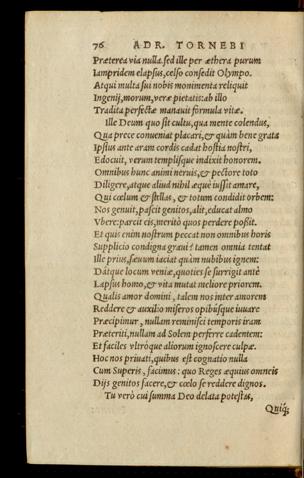 76 ADR. TORNEBI
Præterea via nulla. sed ille per æthera purum
Iampridem elapsus, celso consedit Olympo.
Atqui multa sui nobis monimenta reliquit
Ingenij, morum, veræ pietatis: ab illo
Tradita perfectæ manauit formula vitæ.
Ille Deum quo sit cultu, qua mente colendus,
Qua prece conueniat placari, & quàm bene grata
Ipsius ante aram cordis cadat hostia nostri,
Edocuit, verum templisque indixit honorem.
Omnibus hunc animi neruis, & pectore toto
Diligere, atque aliud nihil æquè iussit amare,
Qui cœlum & stellas, & totum condidit orbem:
Nos genuit, pascit genitos, alit, educat almo
Vbere: parcit eis, meritò quos perdere possit.
Et quis enim nostrum peccat non omnibus horis
Supplicio condigna graui? tamen omnia tentat
Ille prius, sæuum iaciat quàm nubibus ignem:
Dátque locum veniæ, quoties se surrigit antè
Lapsus homo, & vita mutat meliore priorem.
Qualis amor domini, talem nos inter amorem
Reddere & auxilio miseros opibúsque iuuare
Præcipimur, nullam reminisci temporis iram
Præteriti, nullam ad Solem perferre cadentem:
Et faciles vltróque aliorum ignoscere culpæ.
Hoc nos priuati, quibus est cognatio nulla
Cum Superis, facimus: quo Reges æquius omneis
Dijs genitos facere, & cœlo se reddere dignos.
Tu verò cui summa Deo delata potestas,
Quíq;